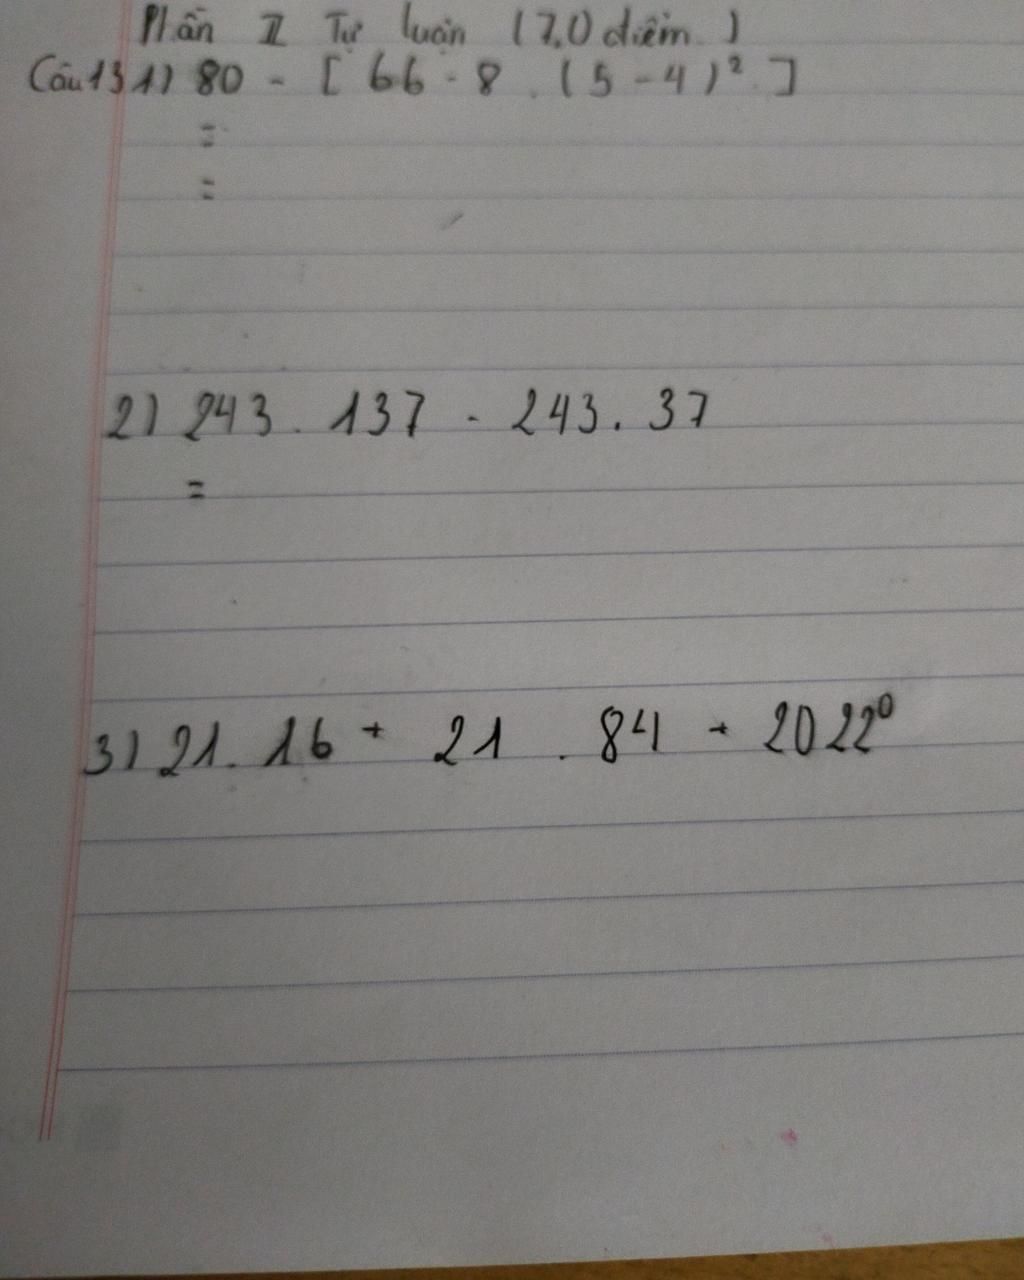 Phần II Tự luận (7,0 điểm)
Câu 13 1) 80 - [ 66 - 8 . (5 - 4)² ]
=
=
2) 243 . 137 - 243 . 37
=
3) 21 . 16 + 21 . 84 + 2022⁰